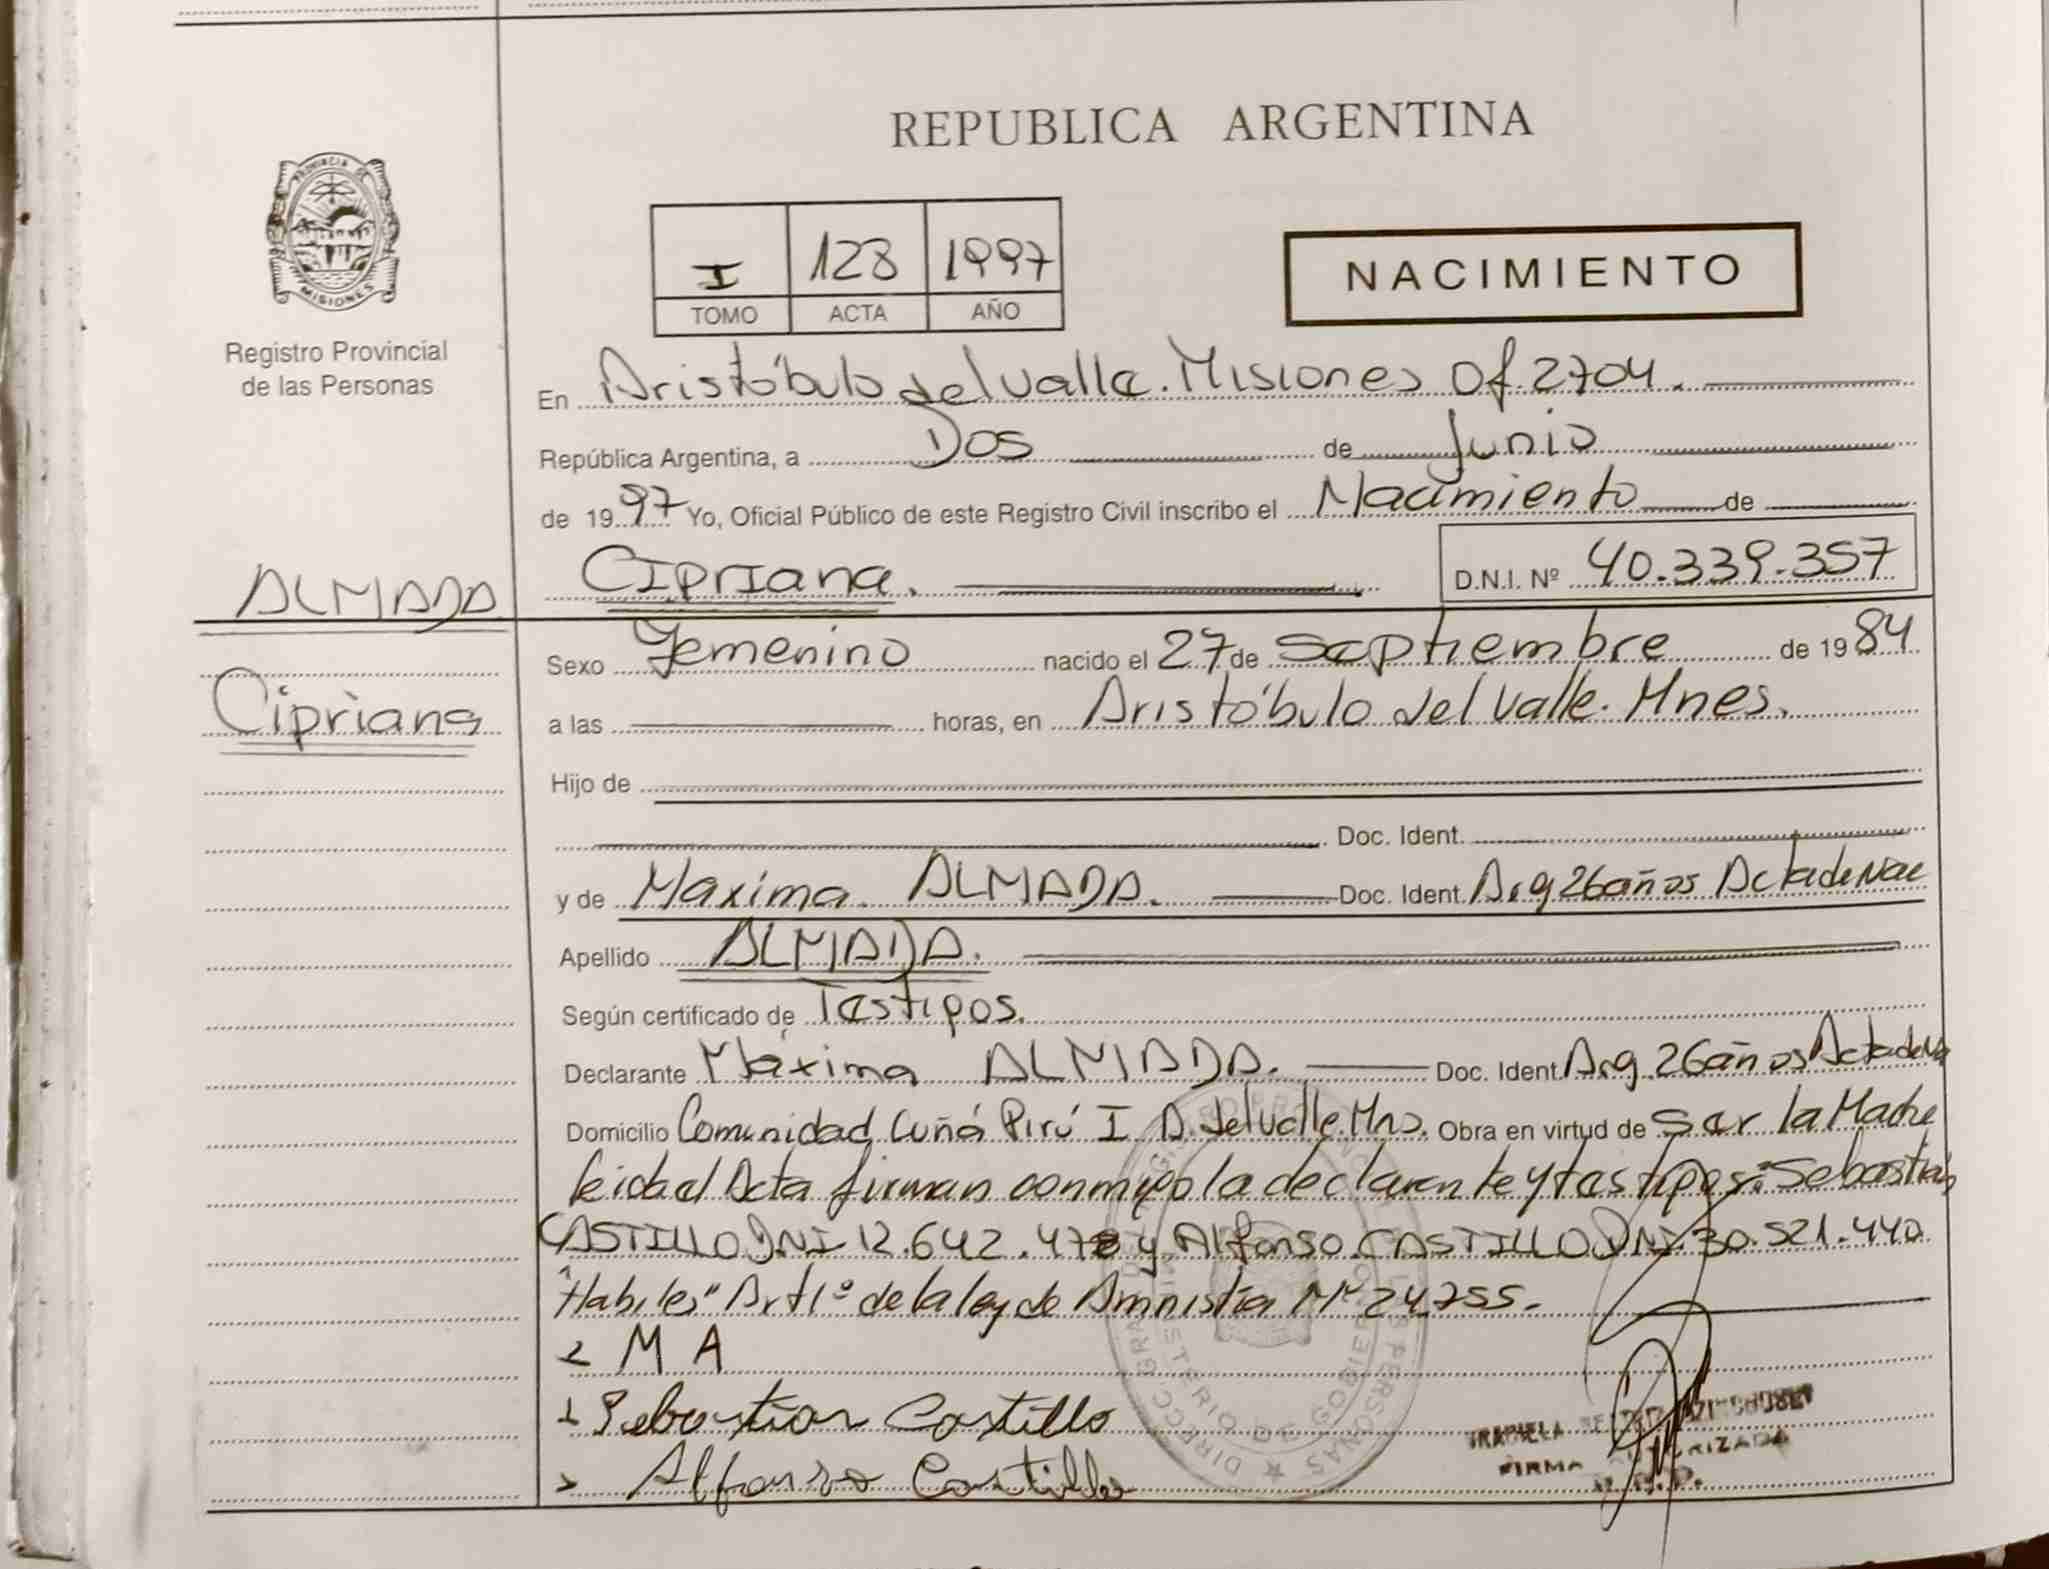 REPUBLICA ARGENTINA
PROVINCIA DE
MISIONES
Registro Provincial
de las Personas
I 128 1997
TOMO ACTA AÑO
NACIMIENTO
En Aristóbulo del Valle. Misiones Of. 2704.
República Argentina, a Dos de Junio
de 1997 Yo, Oficial Público de este Registro Civil inscribo el Nacimiento de
Cipriana. D.N.I. Nº 40.339.357
ALMADA
Cipriana
Sexo Femenino nacido el 27 de Septiembre de 1984
a las horas, en Aristóbulo del Valle. Mnes.
Hijo de
Doc. Ident.
y de Maxima ALMADA. Doc. Ident. Arg 26 años Acta de Nac
Apellido ALMADA.
Según certificado de Testigos.
Declarante Máxima ALMADA. Doc. Ident. Arg. 26 años Acta de Na
Domicilio Comunidad Cuñá Pirú I A. del Valle Mns. Obra en virtud de Ser la Madre
leida el Acta firman conmigo la declarante y testigos: Sebastián
CASTILLO DNI 12.642.478 y Alfonso CASTILLO DNI. 30.521.440
"Habiles" Art 1º de la ley de Amnistia Nº 24.755.
M A
Sebastian Castillo
Alfonso Castillo
FIRMA AUTORIZADA